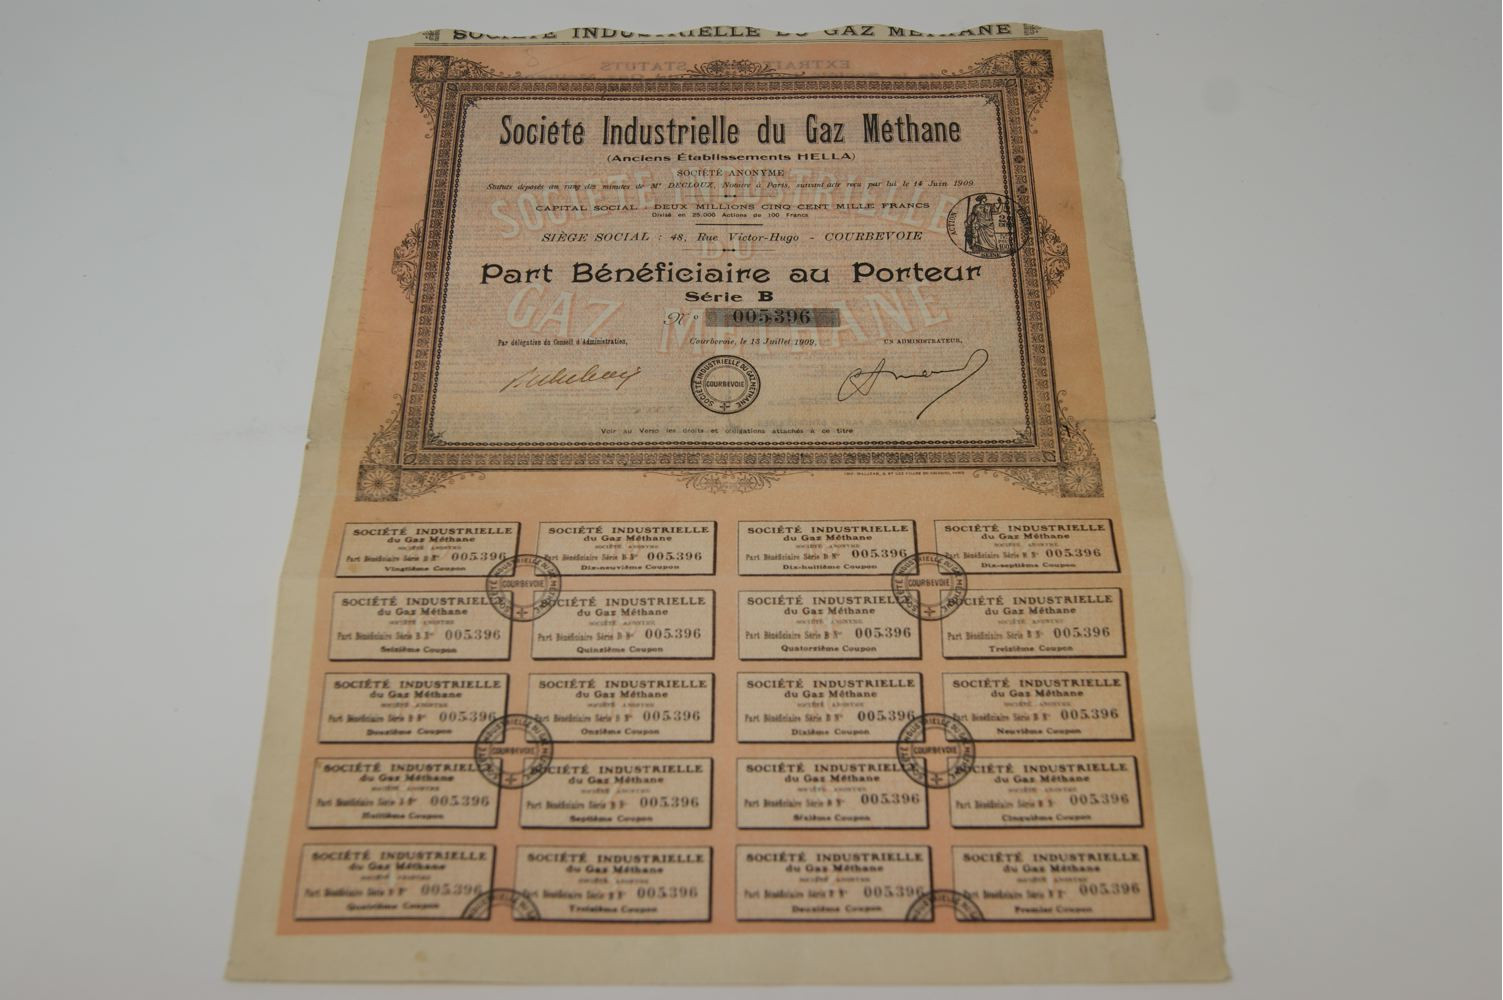 SOCIÉTÉ INDUSTRIELLE DU GAZ MÉTHANE
EXTRAIT STATUTS
Société Industrielle du Gaz Méthane
(Anciens Établissements HELLA)
SOCIÉTÉ ANONYME
Statuts déposés au rang des minutes de Me DECLOUX, Notaire à Paris, suivant acte reçu par lui le 14 Juin 1909
CAPITAL SOCIAL : DEUX MILLIONS CINQ CENT MILLE FRANCS
Divisé en 25.000 Actions de 100 Francs
SIÈGE SOCIAL : 48, Rue Victor-Hugo - COURBEVOIE
ACTION
SEINE
SOCIÉTÉ INDUSTRIELLE
DU
GAZ MÉTHANE
Part Bénéficiaire au Porteur
Série B
No 005396
Par délégation du Conseil d'Administration,
Courbevoie, le 13 Juillet 1909,
UN ADMINISTRATEUR,
SOCIÉTÉ INDUSTRIELLE DU GAZ MÉTHANE
COURBEVOIE
Voir au Verso les droits et obligations attachés à ce titre
SOCIÉTÉ INDUSTRIELLE
du Gaz Méthane
SOCIÉTÉ ANONYME
Part Bénéficiaire Série B No 005.396
Vingtième Coupon
SOCIÉTÉ INDUSTRIELLE
du Gaz Méthane
SOCIÉTÉ ANONYME
Part Bénéficiaire Série B No 005.396
Dix-neuvième Coupon
SOCIÉTÉ INDUSTRIELLE
du Gaz Méthane
SOCIÉTÉ ANONYME
Part Bénéficiaire Série B No 005.396
Dix-huitième Coupon
SOCIÉTÉ INDUSTRIELLE
du Gaz Méthane
SOCIÉTÉ ANONYME
Part Bénéficiaire Série B No 005.396
Dix-septième Coupon
SOCIÉTÉ INDUSTRIELLE DU GAZ MÉTHANE
COURBEVOIE
SOCIÉTÉ INDUSTRIELLE DU GAZ MÉTHANE
COURBEVOIE
SOCIÉTÉ INDUSTRIELLE
du Gaz Méthane
SOCIÉTÉ ANONYME
Part Bénéficiaire Série B No 005.396
Seizième Coupon
SOCIÉTÉ INDUSTRIELLE
du Gaz Méthane
SOCIÉTÉ ANONYME
Part Bénéficiaire Série B No 005.396
Quinzième Coupon
SOCIÉTÉ INDUSTRIELLE
du Gaz Méthane
SOCIÉTÉ ANONYME
Part Bénéficiaire Série B No 005.396
Quatorzième Coupon
SOCIÉTÉ INDUSTRIELLE
du Gaz Méthane
SOCIÉTÉ ANONYME
Part Bénéficiaire Série B No 005.396
Treizième Coupon
SOCIÉTÉ INDUSTRIELLE
du Gaz Méthane
SOCIÉTÉ ANONYME
Part Bénéficiaire Série B No 005.396
Douzième Coupon
SOCIÉTÉ INDUSTRIELLE
du Gaz Méthane
SOCIÉTÉ ANONYME
Part Bénéficiaire Série B No 005.396
Onzième Coupon
SOCIÉTÉ INDUSTRIELLE
du Gaz Méthane
SOCIÉTÉ ANONYME
Part Bénéficiaire Série B No 005.396
Dixième Coupon
SOCIÉTÉ INDUSTRIELLE
du Gaz Méthane
SOCIÉTÉ ANONYME
Part Bénéficiaire Série B No 005.396
Neuvième Coupon
SOCIÉTÉ INDUSTRIELLE DU GAZ MÉTHANE
COURBEVOIE
SOCIÉTÉ INDUSTRIELLE DU GAZ MÉTHANE
COURBEVOIE
SOCIÉTÉ INDUSTRIELLE
du Gaz Méthane
SOCIÉTÉ ANONYME
Part Bénéficiaire Série B No 005.396
Huitième Coupon
SOCIÉTÉ INDUSTRIELLE
du Gaz Méthane
SOCIÉTÉ ANONYME
Part Bénéficiaire Série B No 005.396
Septième Coupon
SOCIÉTÉ INDUSTRIELLE
du Gaz Méthane
SOCIÉTÉ ANONYME
Part Bénéficiaire Série B No 005.396
Sixième Coupon
SOCIÉTÉ INDUSTRIELLE
du Gaz Méthane
SOCIÉTÉ ANONYME
Part Bénéficiaire Série B No 005.396
Cinquième Coupon
SOCIÉTÉ INDUSTRIELLE
du Gaz Méthane
SOCIÉTÉ ANONYME
Part Bénéficiaire Série B No 005.396
Quatrième Coupon
SOCIÉTÉ INDUSTRIELLE
du Gaz Méthane
SOCIÉTÉ ANONYME
Part Bénéficiaire Série B No 005.396
Troisième Coupon
SOCIÉTÉ INDUSTRIELLE
du Gaz Méthane
SOCIÉTÉ ANONYME
Part Bénéficiaire Série B No 005.396
Deuxième Coupon
SOCIÉTÉ INDUSTRIELLE
du Gaz Méthane
SOCIÉTÉ ANONYME
Part Bénéficiaire Série B No 005.396
Premier Coupon